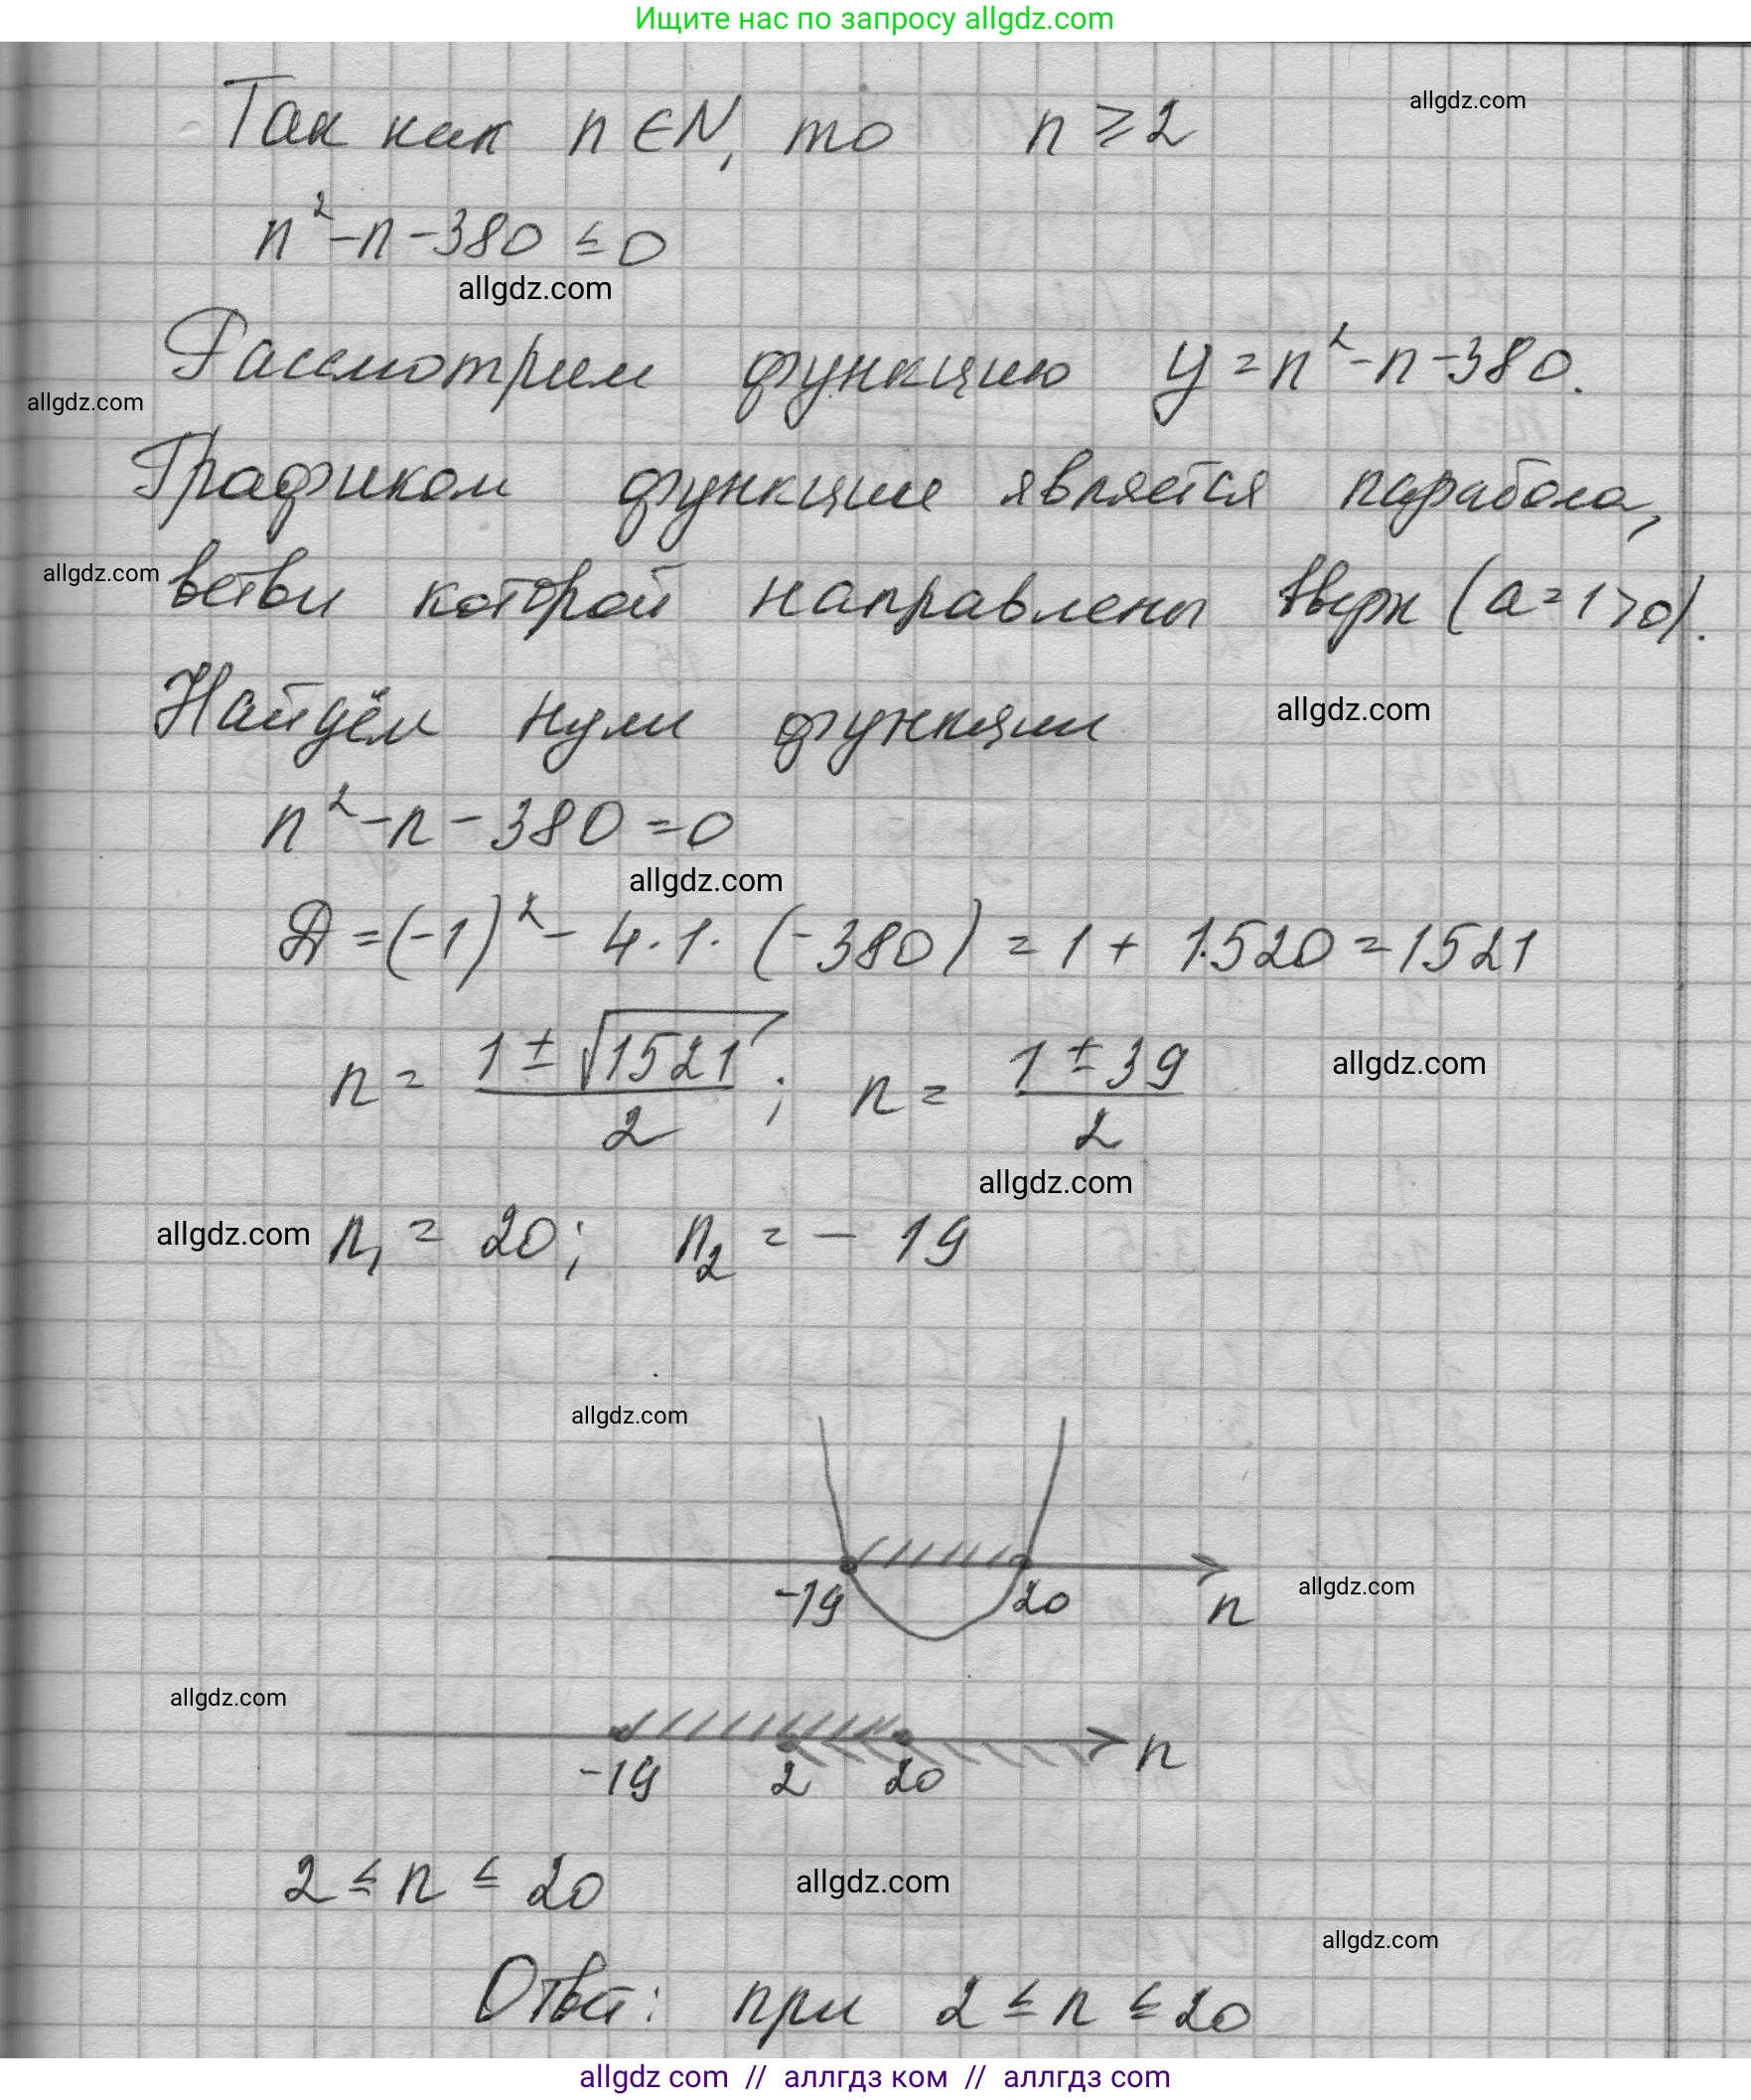 Ищите нас по запросу allgdz.com
allgdz.com
Так как n ∈ N, то n ≥ 2
n² - n - 380 ≤ 0
allgdz.com
Рассмотрим функцию y = n² - n - 380.
allgdz.com
Графиком функции является парабола,
allgdz.com
ветви которой направлены вверх (a = 1 > 0).
Найдём нули функции
allgdz.com
n² - n - 380 = 0
allgdz.com
D = (-1)² - 4 · 1 · (-380) = 1 + 1520 = 1521
n = (1 ± √1521) / 2 ; n = (1 ± 39) / 2
allgdz.com
allgdz.com
allgdz.com
n₁ = 20; n₂ = - 19
allgdz.com
-19 20 n
allgdz.com
allgdz.com
-19 2 20 n
2 ≤ n ≤ 20
allgdz.com
allgdz.com
Ответ: при 2 ≤ n ≤ 20
allgdz com // аллгдз ком // аллгдз com